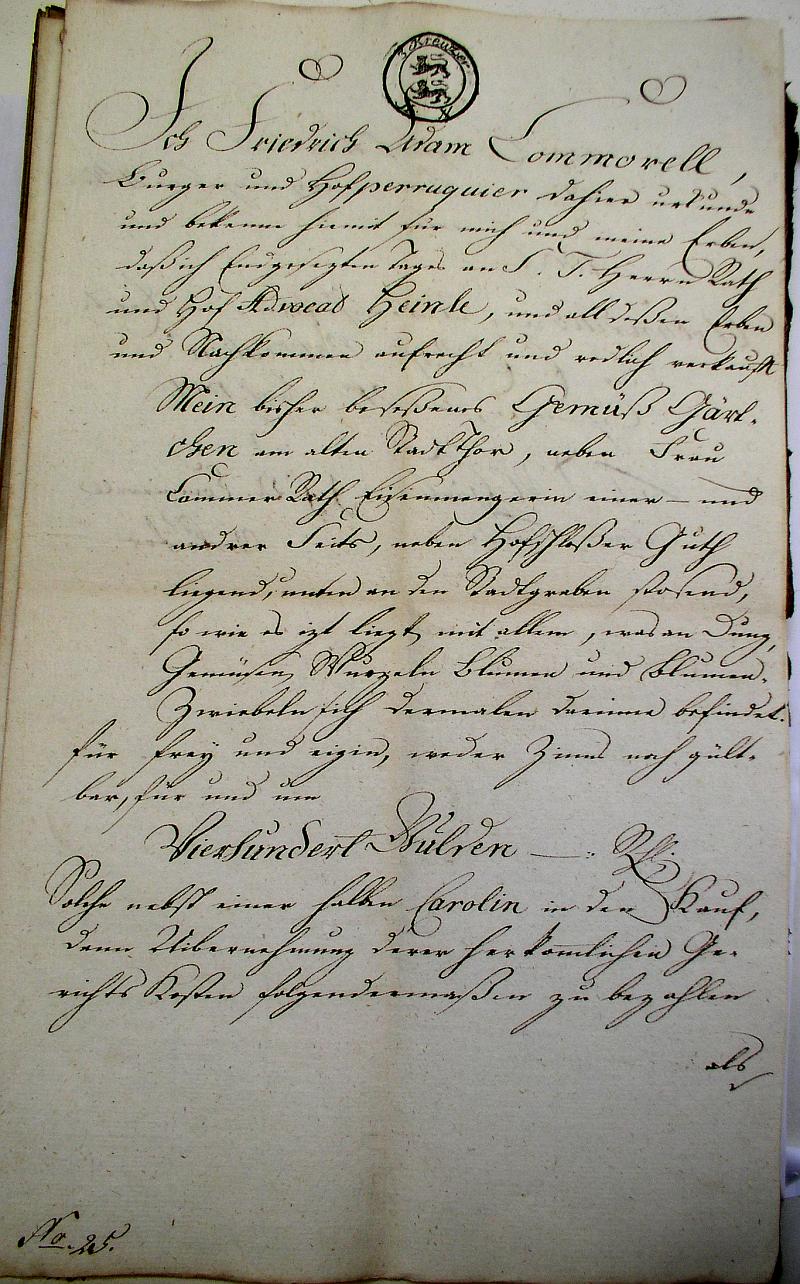 3 Kreuzer
Ich Friedrich Adam Commorell,
Burger und Hofperruquier dahier urkunde
und bekenne hiemit für mich und meine Erben,
daß ich Endgesezten Tages an S. T. Herrn Rath
und Hof Advocat Heinle, und all deßen Erben
und Nachkommen aufrecht und redlich verkauft
Mein bisher beseßenes Gemüß Gärt-
chen am alten Stadt Thor, neben Frau
Cammer Rath Eisenmengerin einer – und
andrer Seits, neben Hofschloßer Guth
liegend, unten an den Stadtgraben stosend,
so wie es izt liegt, mit allem, was an Dung,
Gemüsen, Wurzeln Blumen und Blumen-
Zwiebeln sich dermalen darinne befindet.
für frey und eigen, weder Zinns noch gült-
bar, für und um
Vierhundert Gulden —:
Solche nebst einer halben Carolin in den Kauf,
denn Uibernehmung derer herkomlichen Ge-
richts Kosten folgendermaßen zu bezahlen
als
No. 25.